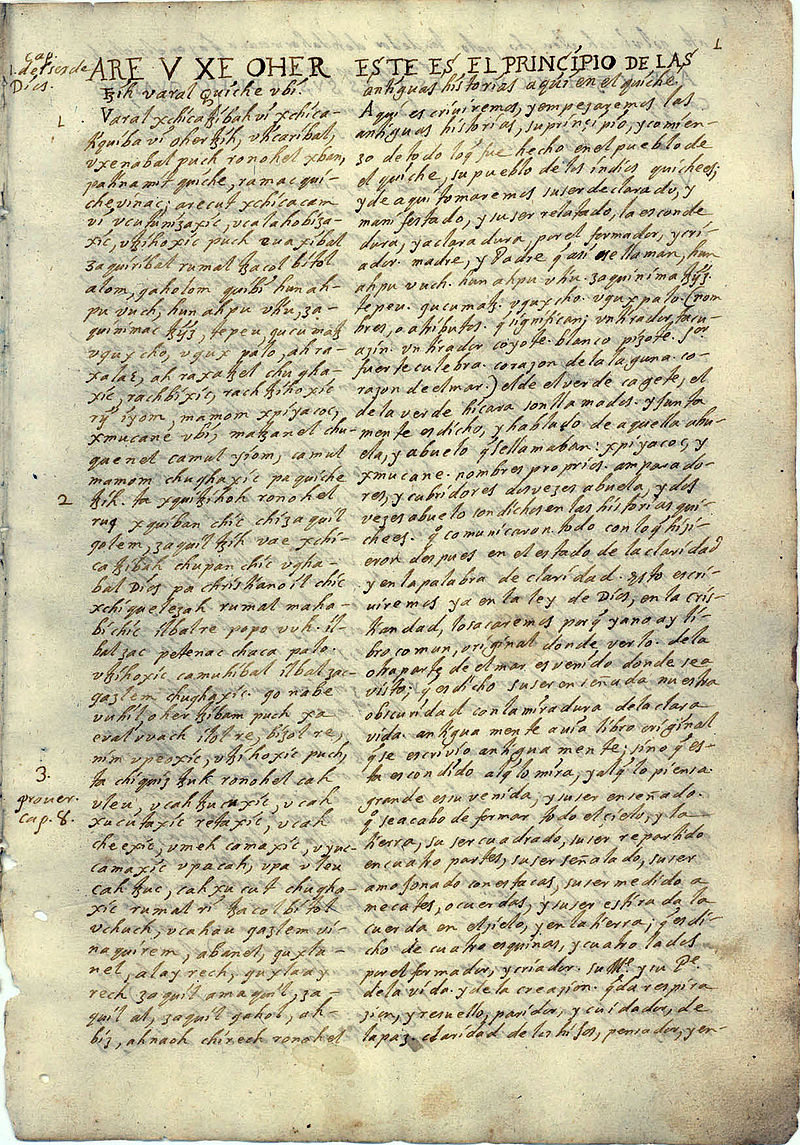 1
Cap.
1. del ser de
Dios.
ARE V XE OHER
tzih varal Quiche vbi.
1
Varal xchicatzibah vi xchica-
tiquiba vi oher tzih, vticaribal,
vxenabal puch ronohel xban,
pa tinamit quiche, ramac qui-
che vinac; arecut xchicacam
vi vcutunizaxic, vcalahobiza-
xic, vtzihoxic puch euaxibal
zaquiribal rumal tzacol bitol
alom, qaholom quibi hun ah-
pu vuch, hun ahpu vtiu, za-
quinimac tzyz, tepeu, qucumatz
vqux cho, vqux palo, ah ra-
xa la3, ah raxa tzel chugha-
xic, rach bixic, rach tzihoxic
ri iyom, mamom xpiyacoc,
xmucane vbi, matzanel chu-
quenel camul iyom, camul
mamom chughaxic pa quiche
2
tzih. ta xquitzihoh ronohel
ruq xquiban chic chi zaquil
qolem, zaquil tzih vae xchi-
catzibah chupan chic vgha-
bal Dios pa christianoil chic
xchiquelezah rumal maha-
bi chic ilbal re popo vuh. il-
bal zac petenac chaca palo.
vtzihoxic camuhibal ilbal zac-
qazlem chughaxic. qo nabe
vuhil, oher tzibam puch xa
eval vvach ilol re, bizol re,
nim vpeoxic, vtzihoxic puch,
3.
prouer.
cap. 8.
ta chi quiz tzuk ronohel cah
vleu, vcah tzucuxic, v cah
xucutaxic retaxic, v cah
cheexic, vmeh camaxic, vyuc-
camaxic vpa cah, vpa vleu
cah tzuc, cah xucut chugha-
xic rumal ri tzacol bitol
vchuch, vcahau qazlem vi-
naquirem, abanel, quxla-
nel, alay rech, quxlaay
rech zaquil amaquil, za-
quil al, zaquil qahol, ah-
biz, ahnaoh chirech ronohel
ESTE ES EL PRINCIPIO DE LAS
antiguas historias aqui en el quiche.
Aqui escriuiremos, y empezaremos las
antiguas historias, su prinsipio, y comien-
zo de todo loq̃ fue hecho en el pueblo de
el quiche, su pueblo de los indios quichees;
y de aqui tomaremos su ser declarado, y
manifestado, y su ser relatado, la esconde
dura, y aclaradura, por el formador, y cri-
ador. madre, y Padre q̃ asi se llaman, hun
ahpu vuch. hun ahpu vtiu. zaquinima tzyz.
tepeu. qucumatz. vqux cho. vqux palo. (nom
bres, o atributos. q̃ significan; vn tirador, tacu-
azin. vn tirador coyote. blanco pizote. Sor
fuerte culebra. corazon de la laguna. co-
razon de el mar.) el de el verde cagete, el
de la verde hicara son llamados. y junta
mente es dicho, y hablado de aquella abu-
ela, y abuelo q̃ se llamaban: xpiyacoc, y
xmucane. nombres proprios. amparado-
res, y cubridores dos vezes abuela, y dos
vezes abuelo son dichos en las historias qui-
chees. q̃ comunicaron todo con lo q̃ hizi-
eron despues en el estado de la claridad
y en la palabra de claridad. Esto escri-
uiremos ya en la ley de Dios, en la cris-
tiandad, lo sacaremos porq̃ ya no ay li-
bro comun, original donde verlo. de la
otra parte de el mar es venido donde sea
visto; q̃ es dicho su ser enseñada nuestra
obscuridad con la miradura de la clara
vida. antigua mente auia libro original
q̃ se escrivio antigua mente; sino q̃ es-
ta escondido al q̃ lo mira, y al q̃ lo piensa.
grande es su venida, y su ser enseñado.
q̃ se acabo de formar todo el cielo, y la
tierra, su ser cuadrado, su ser repartido
en cuatro partes, su ser señalado, su ser
amojonado con estacas, su ser medido a
mecates, o cuerdas, y su ser estirada la
cuerda en el zielo, y en la tierra; q̃ es di-
cho de cuatro esquinas, y cuatro lados
por el formador, y criador. su Me. y su Pe.
de la vida. y de la creazion. q̃ da respira
zion, y resuello, paridor, y cuidador, de
la paz. claridad de los hijos, pensador, y en-